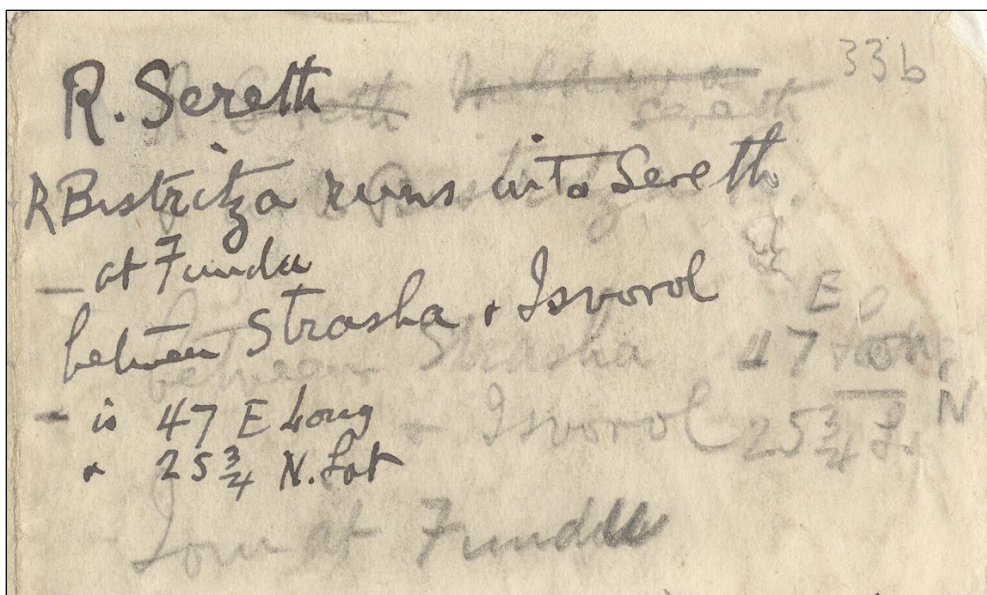 33b
R. Sereth
R Bistritza runs into Sereth
— at Fundu
between Strasha & Isvorol
— is 47 E Long
& 25 3/4 N. Lat
between Strasha
& Isvorol
E
47 Long
N
25 3/4
Town at Fundu